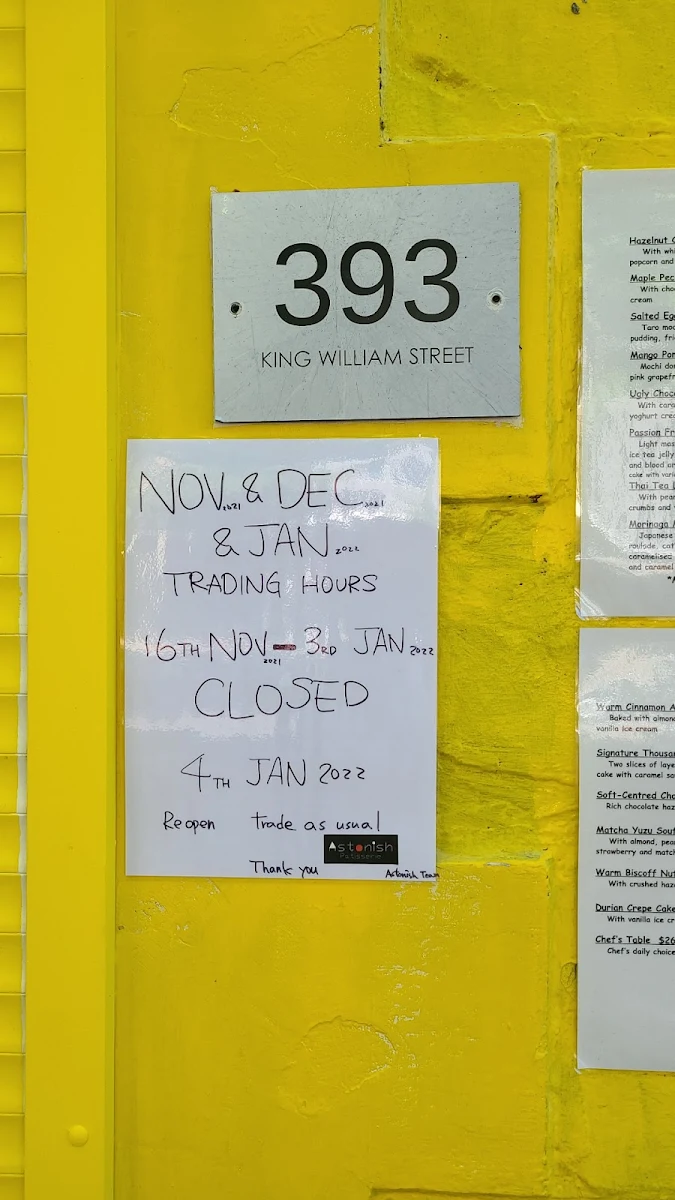 393
KING WILLIAM STREET
NOV. 2021 & DEC. 2021
& JAN. 2022
TRADING HOURS
16TH NOV 2021 – 3RD JAN 2022
CLOSED
4TH JAN 2022
Reopen trade as usual
Astonish
Patisserie
Thank you
Astonish Team
Hazelnut
With
popcorn and
Maple
With
cream
Salted
Taro
pudding,
Mango
Mochi
pink
Ugly
With
yoghurt
Passion
Light
ice tea jelly
and blood
cake with
Thai Tea
With
crumbs and
Morinaga
Japanese
roulade,
caramelised
and caramel
Warm Cinnamon
Baked with
vanilla ice cream
Signature
Two slices of
cake with caramel
Soft-Centred
Rich chocolate
Matcha Yuzu
With almond,
strawberry and
Warm Biscoff
With crushed
Durian Crepe Cake
With vanilla ice
Chef's Table $26
Chef's daily choice